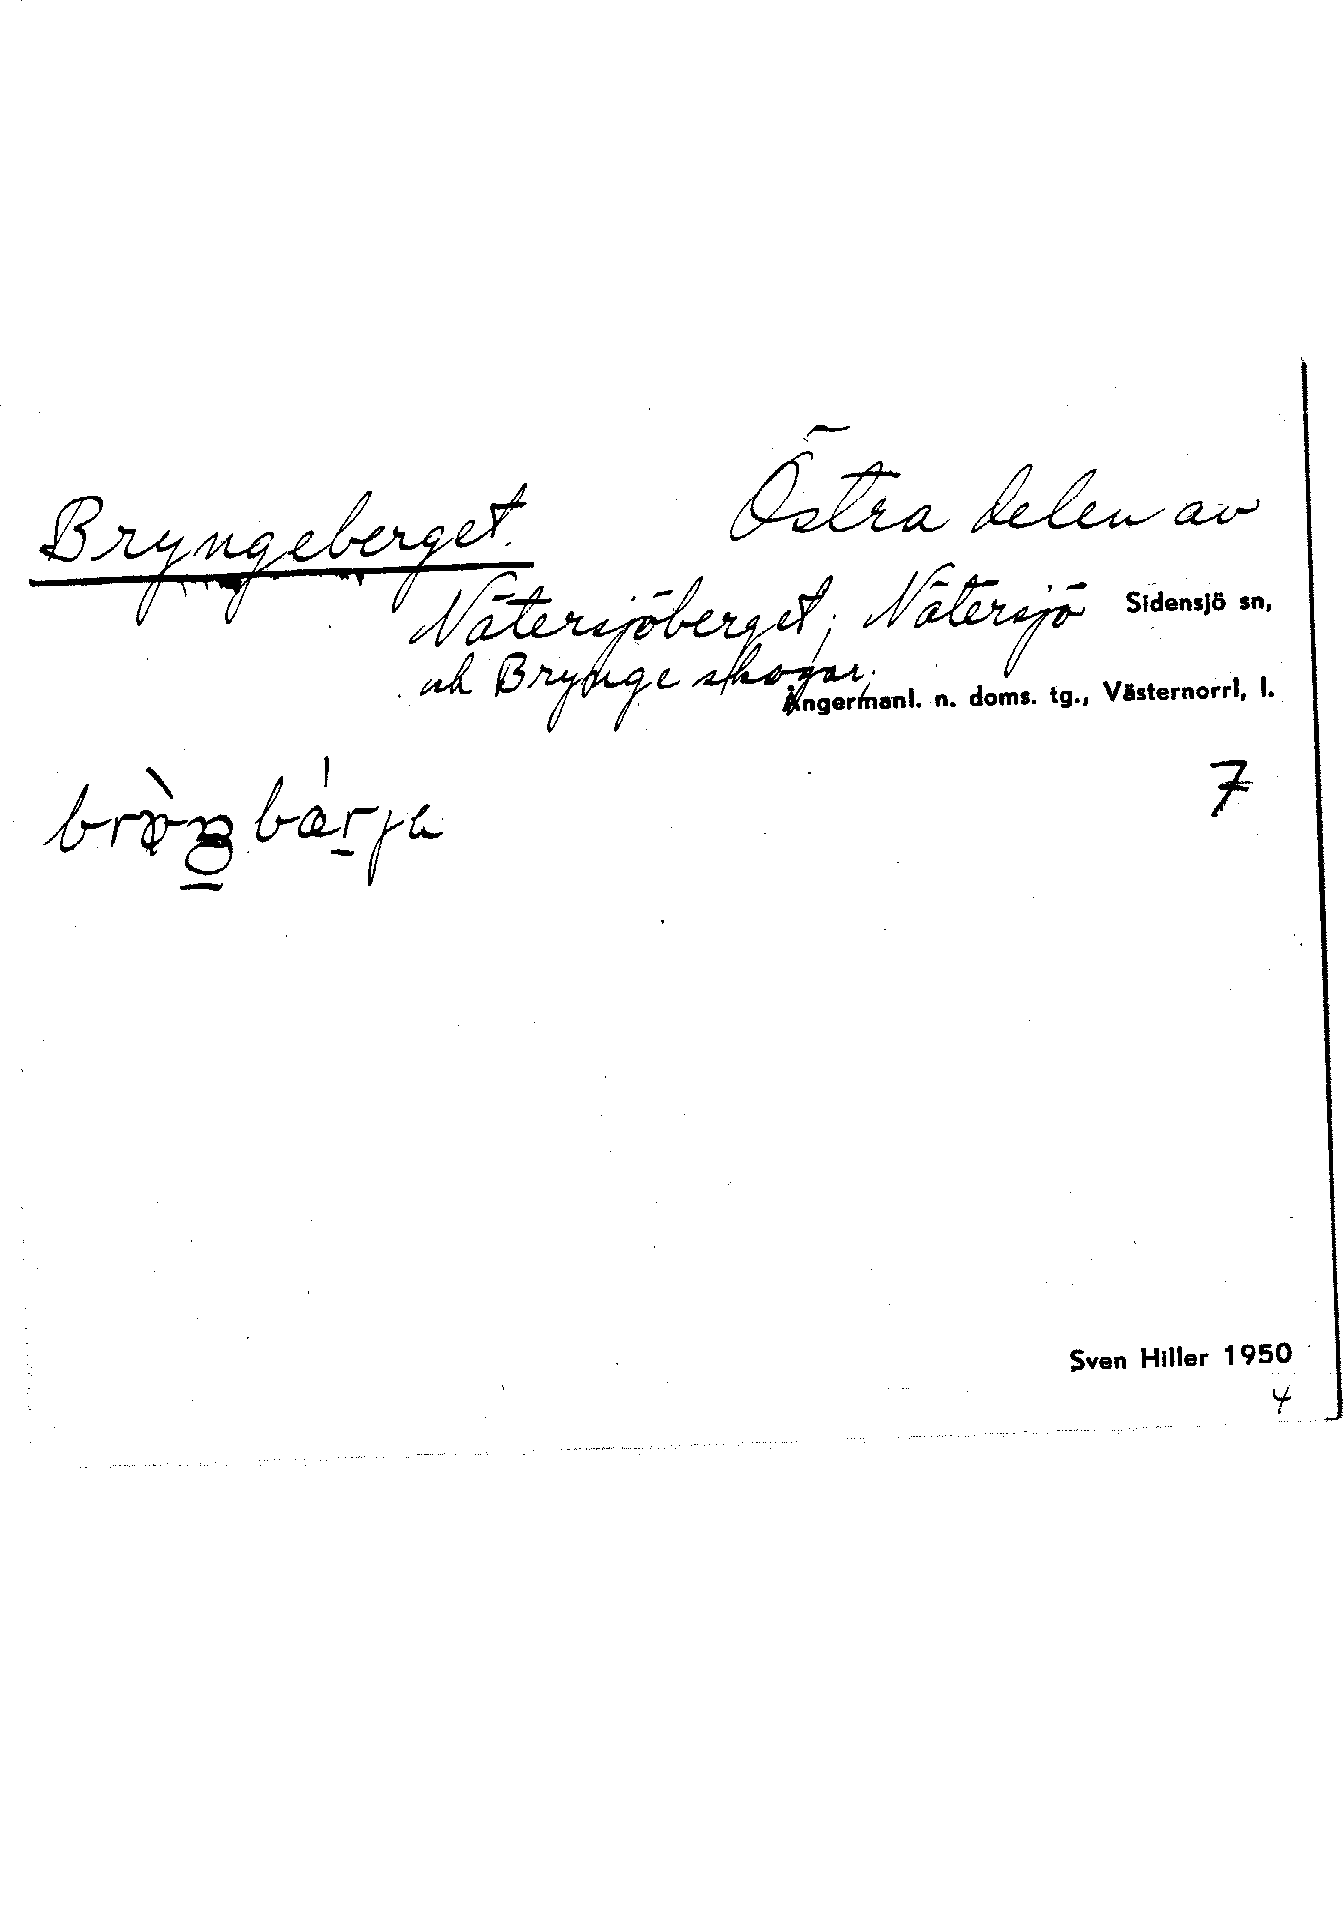 Bryngeberget.
Östra delen av
Nätersjöberget; Nätersjö
och Brynge skogar;
Sidensjö sn,
Ångermanl. n. doms. tg., Västernorrl, l.
7
Sven Hiller 1950
4